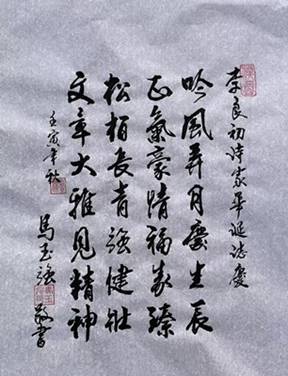 李良初诗家华诞志慶
吟風弄月慶生辰
正氣豪情福家臻
松柏長青强健壯
文章大雅見精神
壬寅年秋
馬玉强敬書